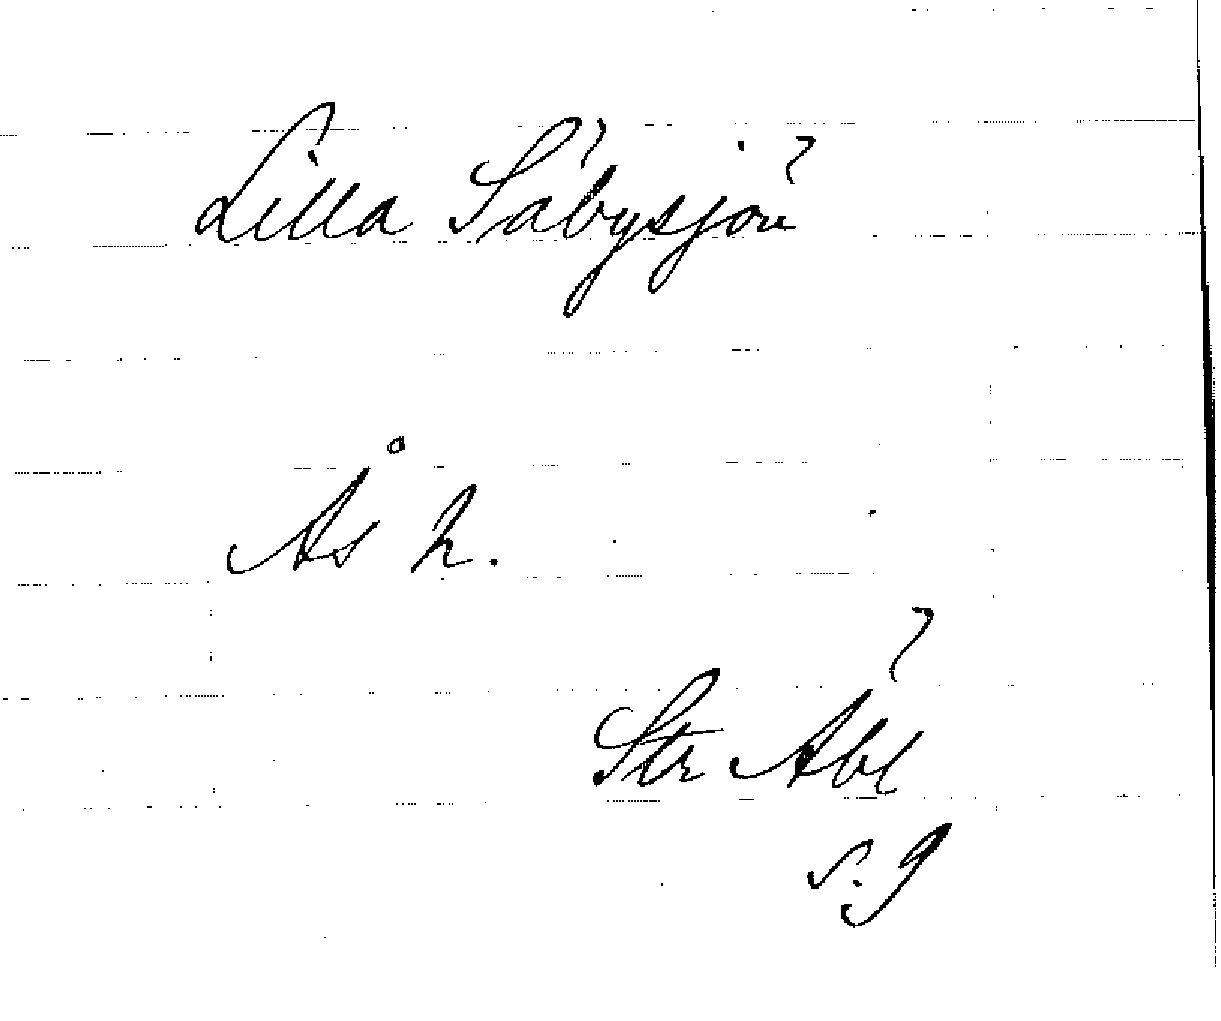 Lilla Säbysjön
Ås h.
Str Åbl
s. 9